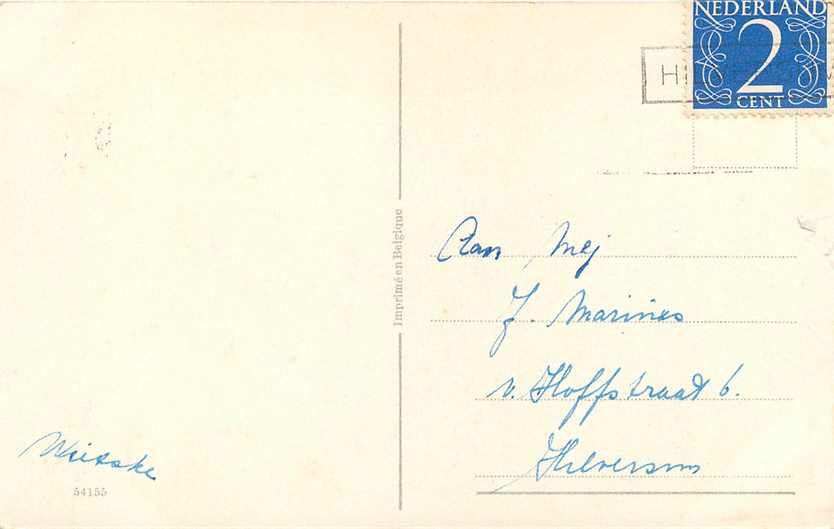 NEDERLAND
2
CENT
H
Imprimé en Belgique
Aan Mej
J. Marines
v. Hoffstraat 6.
Hilversum
Wietske
54155